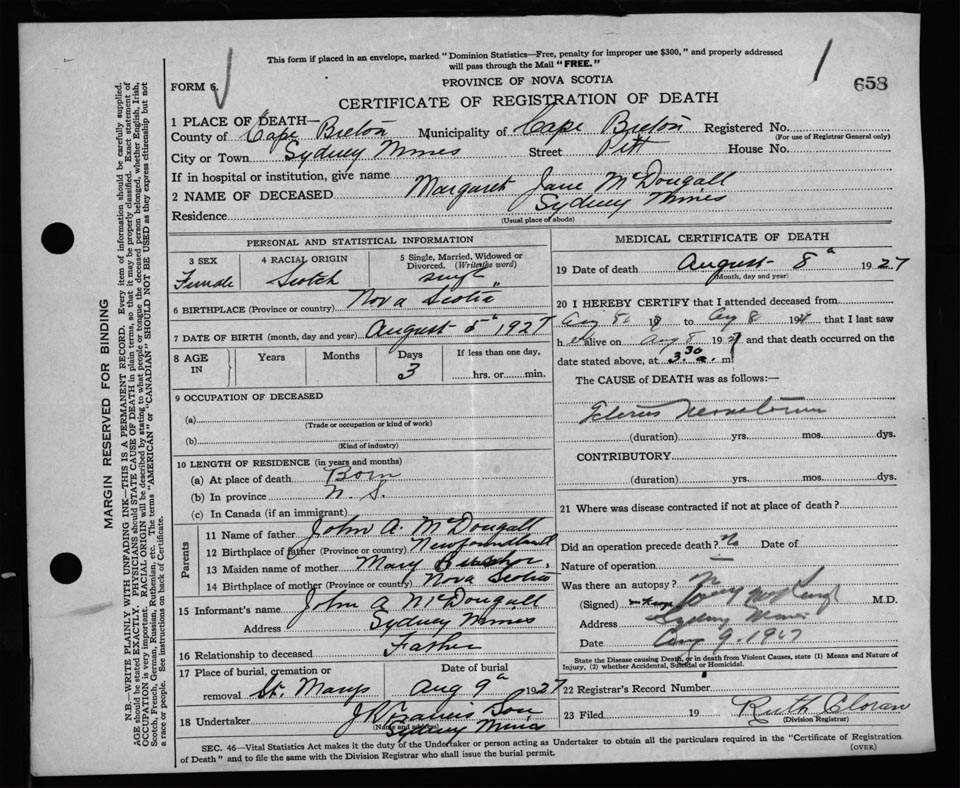 This form if placed in an envelope, marked "Dominion Statistics—Free, penalty for improper use $300," and properly addressed
will pass through the Mail "FREE."
FORM 6.
PROVINCE OF NOVA SCOTIA
658
CERTIFICATE OF REGISTRATION OF DEATH
1 PLACE OF DEATH—
County of Cape Breton Municipality of Cape Breton Registered No.
(For use of Registrar General only)
City or Town Sydney Mines Street Pitt House No.
If in hospital or institution, give name
2 NAME OF DECEASED Margaret Jane McDougall
Residence Sydney Mines
(Usual place of abode)
PERSONAL AND STATISTICAL INFORMATION
3 SEX Female
4 RACIAL ORIGIN Scotch
5 Single, Married, Widowed or
Divorced. (Write the word)
6 BIRTHPLACE (Province or country) Nova Scotia
7 DATE OF BIRTH (month, day and year) August 5 1927
8 AGE IN Years Months Days 3 If less than one day,
hrs. or min.
9 OCCUPATION OF DECEASED
(a)
(Trade or occupation or kind of work)
(b)
(Kind of industry)
10 LENGTH OF RESIDENCE (in years and months)
(a) At place of death Born
(b) In province N. S.
(c) In Canada (if an immigrant)
Parents
11 Name of father John A. McDougall
12 Birthplace of father (Province or country) Newfoundland
13 Maiden name of mother Mary
14 Birthplace of mother (Province or country) Nova Scotia
15 Informant's name John A McDougall
Address Sydney Mines
16 Relationship to deceased Father
17 Place of burial, cremation or Date of burial
removal St. Marys Aug 9 1927
18 Undertaker J K Francis Son
(Name and address)
Sydney Mines
MEDICAL CERTIFICATE OF DEATH
19 Date of death August 8 1927
(Month, day and year)
20 I HEREBY CERTIFY that I attended deceased from
to Aug 8 19 that I last saw
h alive on Aug 8 19 and that death occurred on the
date stated above, at 3.30 a. m
The CAUSE OF DEATH was as follows:—
Icterus Neonatorum
(duration) yrs. mos. dys.
CONTRIBUTORY
(duration) yrs. mos. dys.
21 Where was disease contracted if not at place of death?
Did an operation precede death? No Date of
Nature of operation
Was there an autopsy?
(Signed) M.D.
Address Sydney Mines
Date Aug 9. 1927
State the Disease causing Death, or in death from Violent Causes, state (1) Means and Nature of
Injury, (2) whether Accidental, Suicidal or Homicidal.
22 Registrar's Record Number
23 Filed 19 Ruth Cloran
(Division Registrar)
SEC. 46—Vital Statistics Act makes it the duty of the Undertaker or person acting as Undertaker to obtain all the particulars required in the "Certificate of Registration
of Death" and to file the same with the Division Registrar who shall issue the burial permit.
(OVER)
MARGIN RESERVED FOR BINDING
N.B.—WRITE PLAINLY WITH UNFADING INK—THIS IS A PERMANENT RECORD. Every item of information should be carefully supplied.
AGE should be stated EXACTLY. PHYSICIANS should STATE CAUSE OF DEATH in plain terms, so that it may be properly classified. Exact statement of
OCCUPATION is very important. RACIAL ORIGIN will be described by stating to what people or tongue the deceased person belonged, whether English, Irish,
Scotch, French, German, Russian, Ruthenian, etc. The terms "AMERICAN" or "CANADIAN" SHOULD NOT BE USED as they express citizenship but not
a race or people. See instructions on back of Certificate.